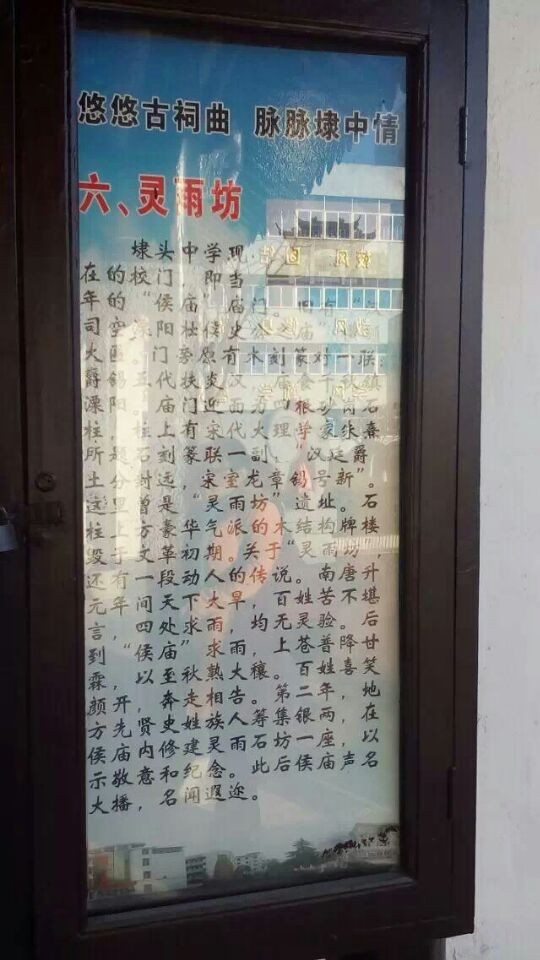 悠悠古祠曲 脉脉埭中情
六、灵雨坊
埭头中学现
在的校门，即当
年的“侯庙门。旧有
司空 阳 侯史公之庙”
。门旁原有木刻篆对一联：
爵锡五代扶炎汉，庙食千秋镇
溧阳。庙门迎面 四根砂岩石
柱，柱上有宋代大理学家朱熹
所 石刻篆联一副：“汉廷爵
土是封远，宋室龙章锡号新”。
这里曾是“灵雨坊”遗址。石
柱上方豪华气派的木结构牌楼
毁于文革初期。关于“灵雨坊”，
还有一段动人的传说。南唐升
元年间天下大旱，百姓苦不堪
言，四处求雨，均无灵验。后
到“侯庙”求雨，上苍普降甘
霖，以至秋熟大穰。百姓喜笑
颜开，奔走相告。第二年，地
方先贤史姓族人筹集银两，在
侯庙内修建灵雨石坊一座，以
示敬意和纪念。此后侯庙声名
大播，名闻遐迩。